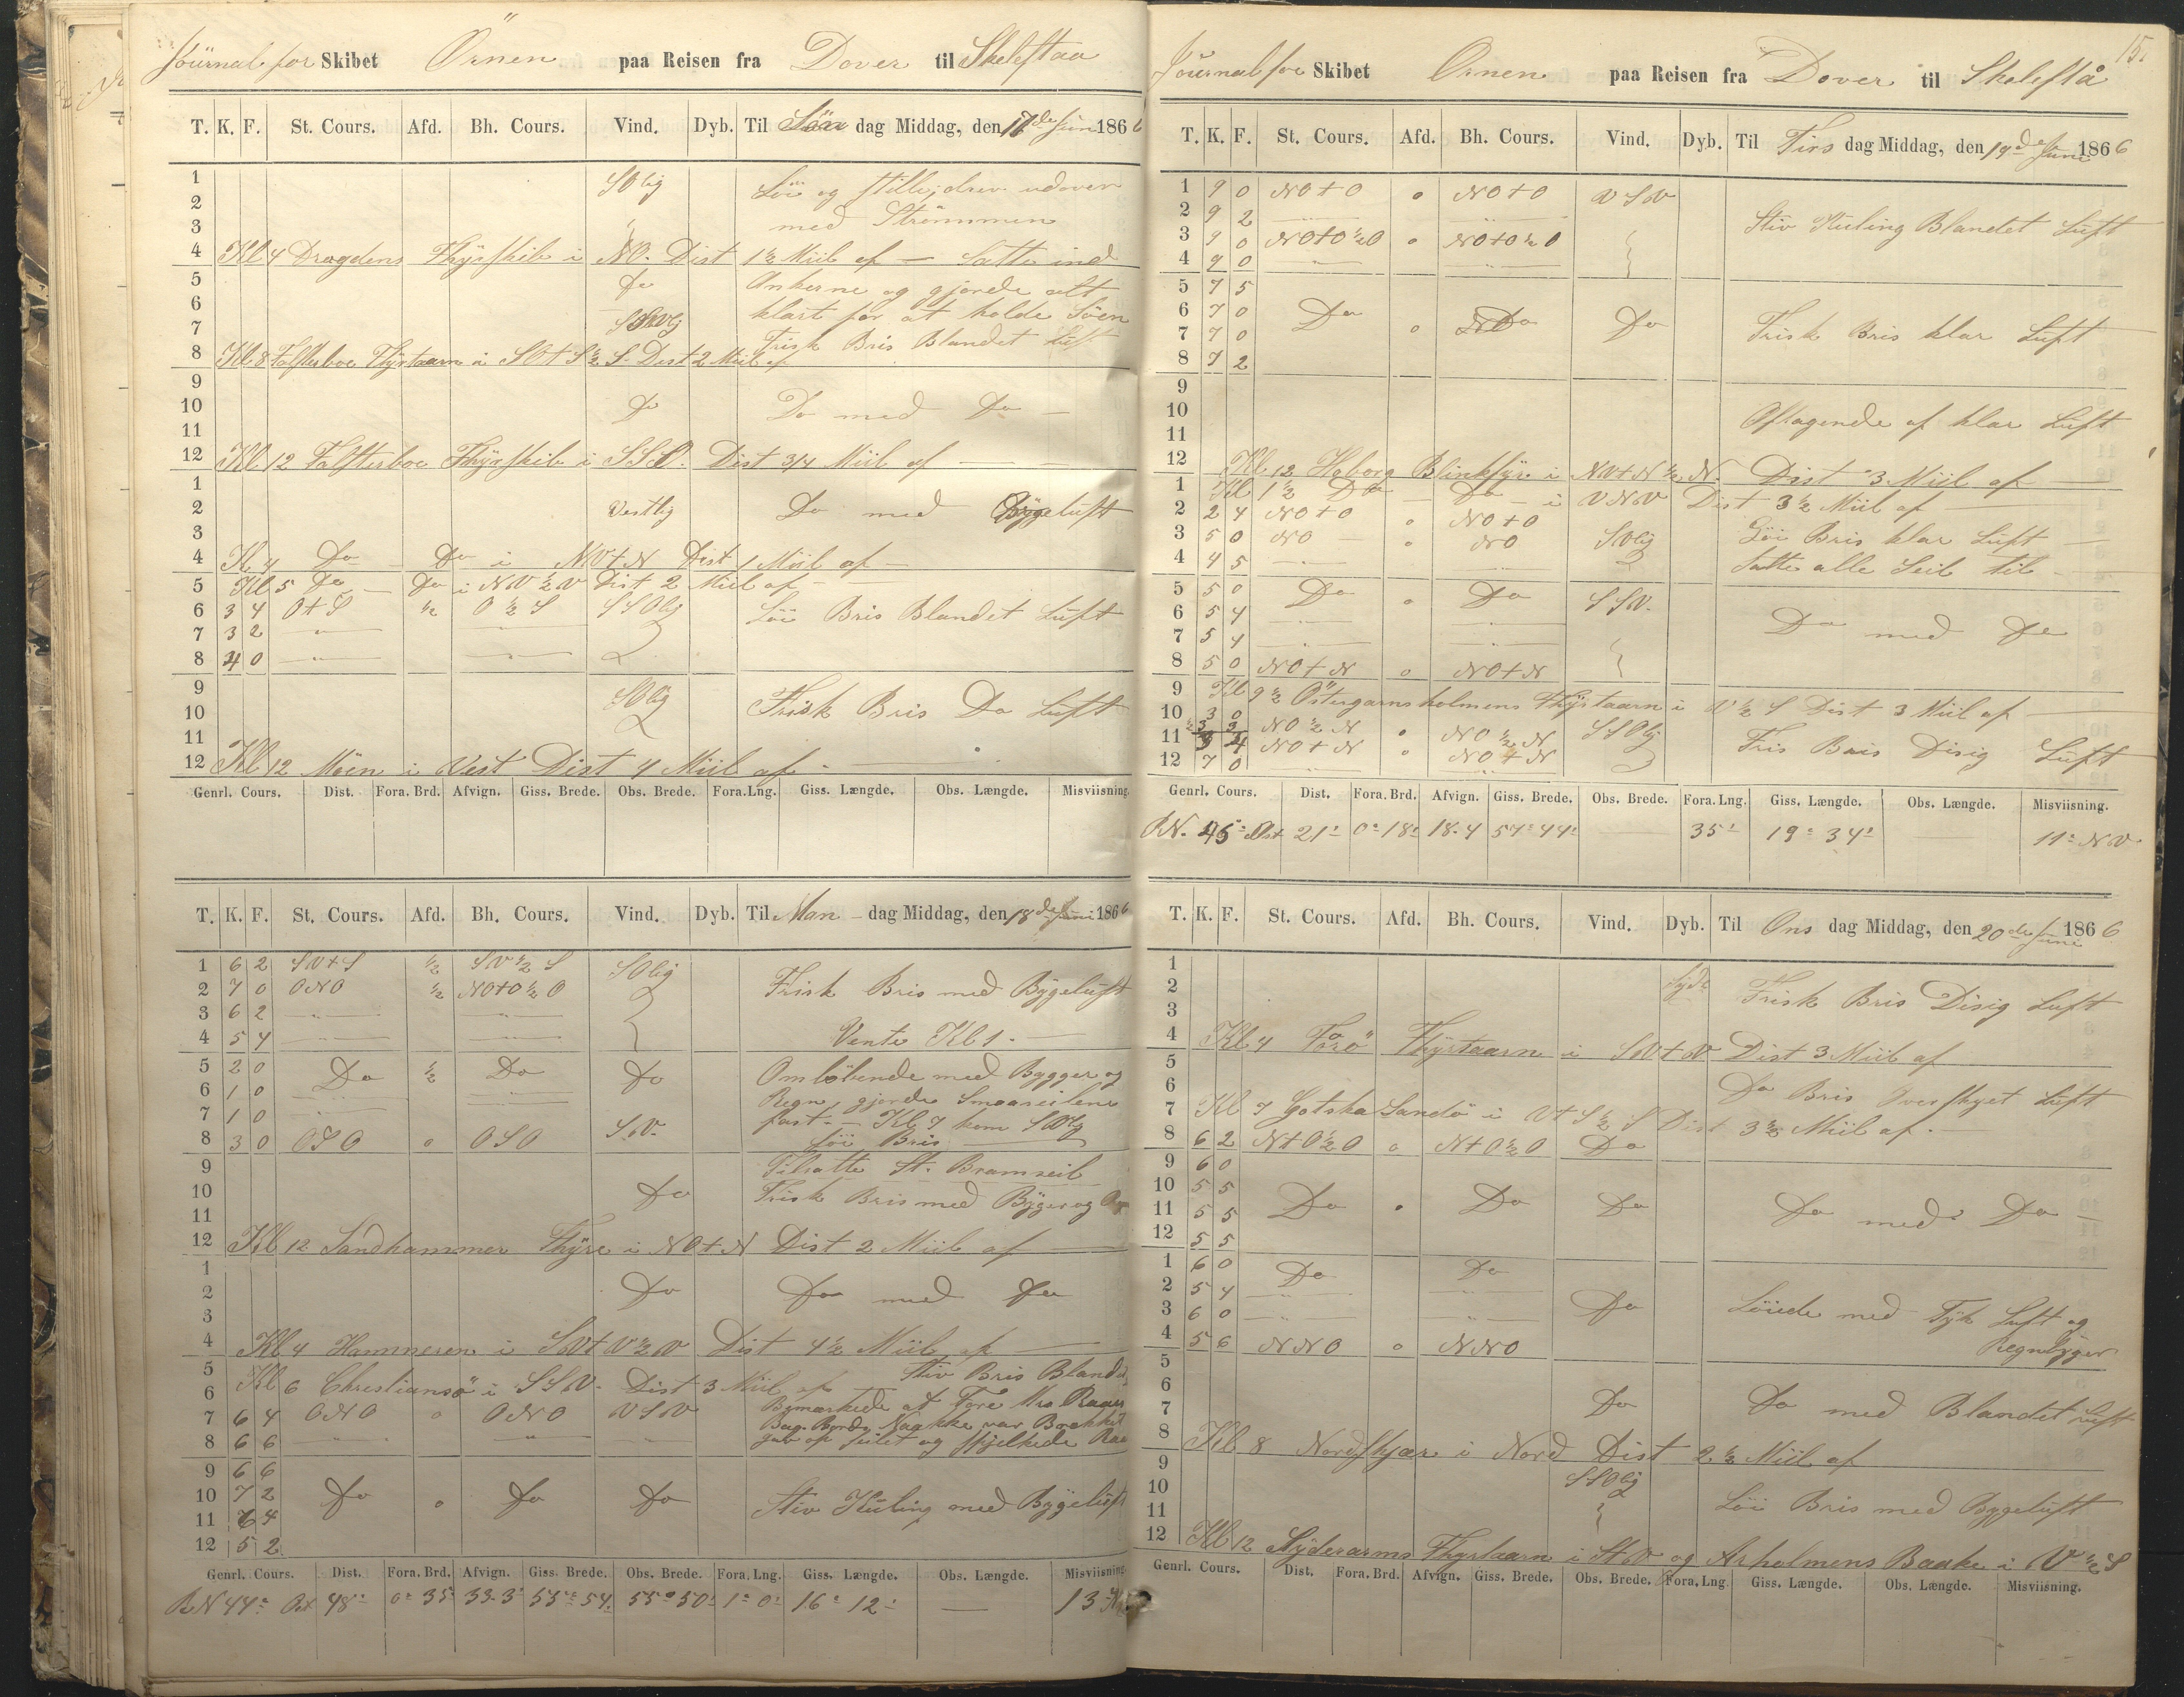 Journal for Skibet Örnen paa Reisen fra Dover til Skeleftaa
T. K. F. St. Cours. Afd. Bh. Cours. Vind. Dyb. Til Søn dag Middag, den 17de Juni 1866
1 SOlig Löi og stille; drev udover
2
3 med Strömmen
4 Kl 4 Drogdens Fhyrskib i NO. Dist 1½ Miil af — Satte ind
5 Do Ankerne og gjorde alt
6 klart for at holde Söen
7 Frisk Bris Blandet Luft
8 Kl 8 Falsterboe Fhyrtaarn i SO+S½S. Dist 2 Miil af
9
10 Do Do med Do —
11
12 Kl 12 Falsterboe Fhyrskib i SSO. Dist 3/4 Miil af —
1
2 Vestlig Do med Bygeluft
3
4 Kl 4 Do — Do i NV+N Dist 1 Miil af —
5 Kl 5 Do — Do i NV½V Dist 2 Miil af —
6 3 4 O+S ½ O½S SSOlig Löi Bris Blandet Luft
7 3 2 — " — — " —
8 4 0 — " — — " —
9 SOlig Frisk Bris Do Luft
10
11
12 Kl 12 Möen i Vest Dist 4 Miil af —
Genrl. Cours. Dist. Fora. Brd. Afvign. Giss. Brede. Obs. Brede. Fora. Lng. Giss. Længde. Obs. Længde. Misviisning.
T. K. F. St. Cours. Afd. Bh. Cours. Vind. Dyb. Til Man dag Middag, den 18de Juni 1866
1 6 2 SV+S ½ SV½S SOlig Frisk Bris med Bygeluft
2 7 0 ONO ½ NO+O½O
3 6 2 — " — — " —
4 5 4 — " — — " — Vente Kl 1. —
5 2 0 Do ½ Do Do Omlöbende med Bygger og
6 1 0 Regn, gjorde Smaaseilene
7 1 0 fast. — Kl 7 kom SVlig
8 3 0 OSO 0 OSO S.V. Löi Bris
9 Tilsatte St. Bramseil
10 Do Frisk Bris med Byger og
11
12 Kl 12 Sandhammer Fhyre i NO+N Dist 2 Miil af —
1
2 Do Do med Do
3
4 Kl 4 Hammeren i SV+V½V Dist 4½ Miil af —
5 Stiv Bris Blandet
6 Kl 6 Christiansö i SSV. Dist 3 Miil af
7 6 4 ONO 0 ONO VSV Bemærkede at Fore Mrs Raaes
Bag. Bords Nakke var Brækket
8 6 6 — " — — " — " gav op seilet og skjelkede Raa
9 6 6
10 7 2 Do 0 Do Do Stiv Kuling med Bygeluft
11 6 4
12 5 2
Genrl. Cours. Dist. Fora. Brd. Afvign. Giss. Brede. Obs. Brede. Fora. Lng. Giss. Længde. Obs. Længde. Misviisning.
RN 44° Ost 48' 0° 35' 33.3' 55° 54' 55° 50' 1° 0' 16° 12' — 13
15.
Journal for Skibet Örnen paa Reisen fra Dover til Skeleftå
T. K. F. St. Cours. Afd. Bh. Cours. Vind. Dyb. Til Tirs dag Middag, den 19de Juni 1866
1 9 0 NO+O 0 NO+O VSV
2 9 2 — " — — " — Stiv Kuling Blandet Luft
3 9 0 NO+O½O 0 NO+O½O
4 9 0 — " — — " —
5 7 5
6 7 0 Do 0 Do Do Frisk Bris klar Luft
7 7 0
8 7 2
9
10 Aftagende af klar Luft
11
12 Kl 12 Hoborg Blinkfyr i NV+N½N. Dist 3 Miil af
1 Kl 1½ Do — Do — i VNV Dist 3½ Miil af —
2 2 4 NO+O 0 NO+O
3 5 0 NO — 0 NO SOlig Löi Bris klar Luft —
4 4 5 — " — — " — Satte alle Seil til —
5 5 0 Do 0 Do SSV.
6 5 4 — " — — " — Do med Do
7 5 4 — " — — " —
8 5 0 NO+N 0 NO+N
9 Kl 9½ Östergarnsholmens Fhyrtaarn i V½S Dist 3 Miil af —
10 3 0 NO½N 0 NO½N SSOlig
11 3 4 NO+N 0 NO+N Fris Bris Disig Luft
12 7 0 — " — — " —
Genrl. Cours. Dist. Fora. Brd. Afvign. Giss. Brede. Obs. Brede. Fora. Lng. Giss. Længde. Obs. Længde. Misviisning.
RN. 45° Ost 21' 0° 18' 18.4 57° 44' 35' 19° 34' 11° NV.
T. K. F. St. Cours. Afd. Bh. Cours. Vind. Dyb. Til Ons dag Middag, den 20de Juni 1866
1
2 Frisk Bris Disig Luft
3
4 Kl 4 Farö Fhyrtaarn i SV+V Dist 3 Miil af
5
6 Do Bris Overskyet Luft
7 Kl 7 Gotska Sandö i V+S½S Dist 3½ Miil af. —
8 6 2 N+O½O 0 N+O½O Do
9 6 0
10 5 5 Do 0 Do Do Do med Do
11 5 5
12 5 5
1 6 0 Do Do
2 5 4 — " — — " — Do Löiede med Tyk Luft og
3 6 0 — " — — " — Regnbyger
4 5 6 NNO 0 NNO
5
6
7 Do Do med Blandet Luft
8 Kl 8 Nordskjær i Nord Dist 2½ Miil af
9
10 SSOlig Löi Bris med Bygeluft
11
12 Kl 12 Syderarms Fhyrtaarn i S+V og Arholmens Baake i V½S
Genrl. Cours. Dist. Fora. Brd. Afvign. Giss. Brede. Obs. Brede. Fora. Lng. Giss. Længde. Obs. Længde. Misviisning.